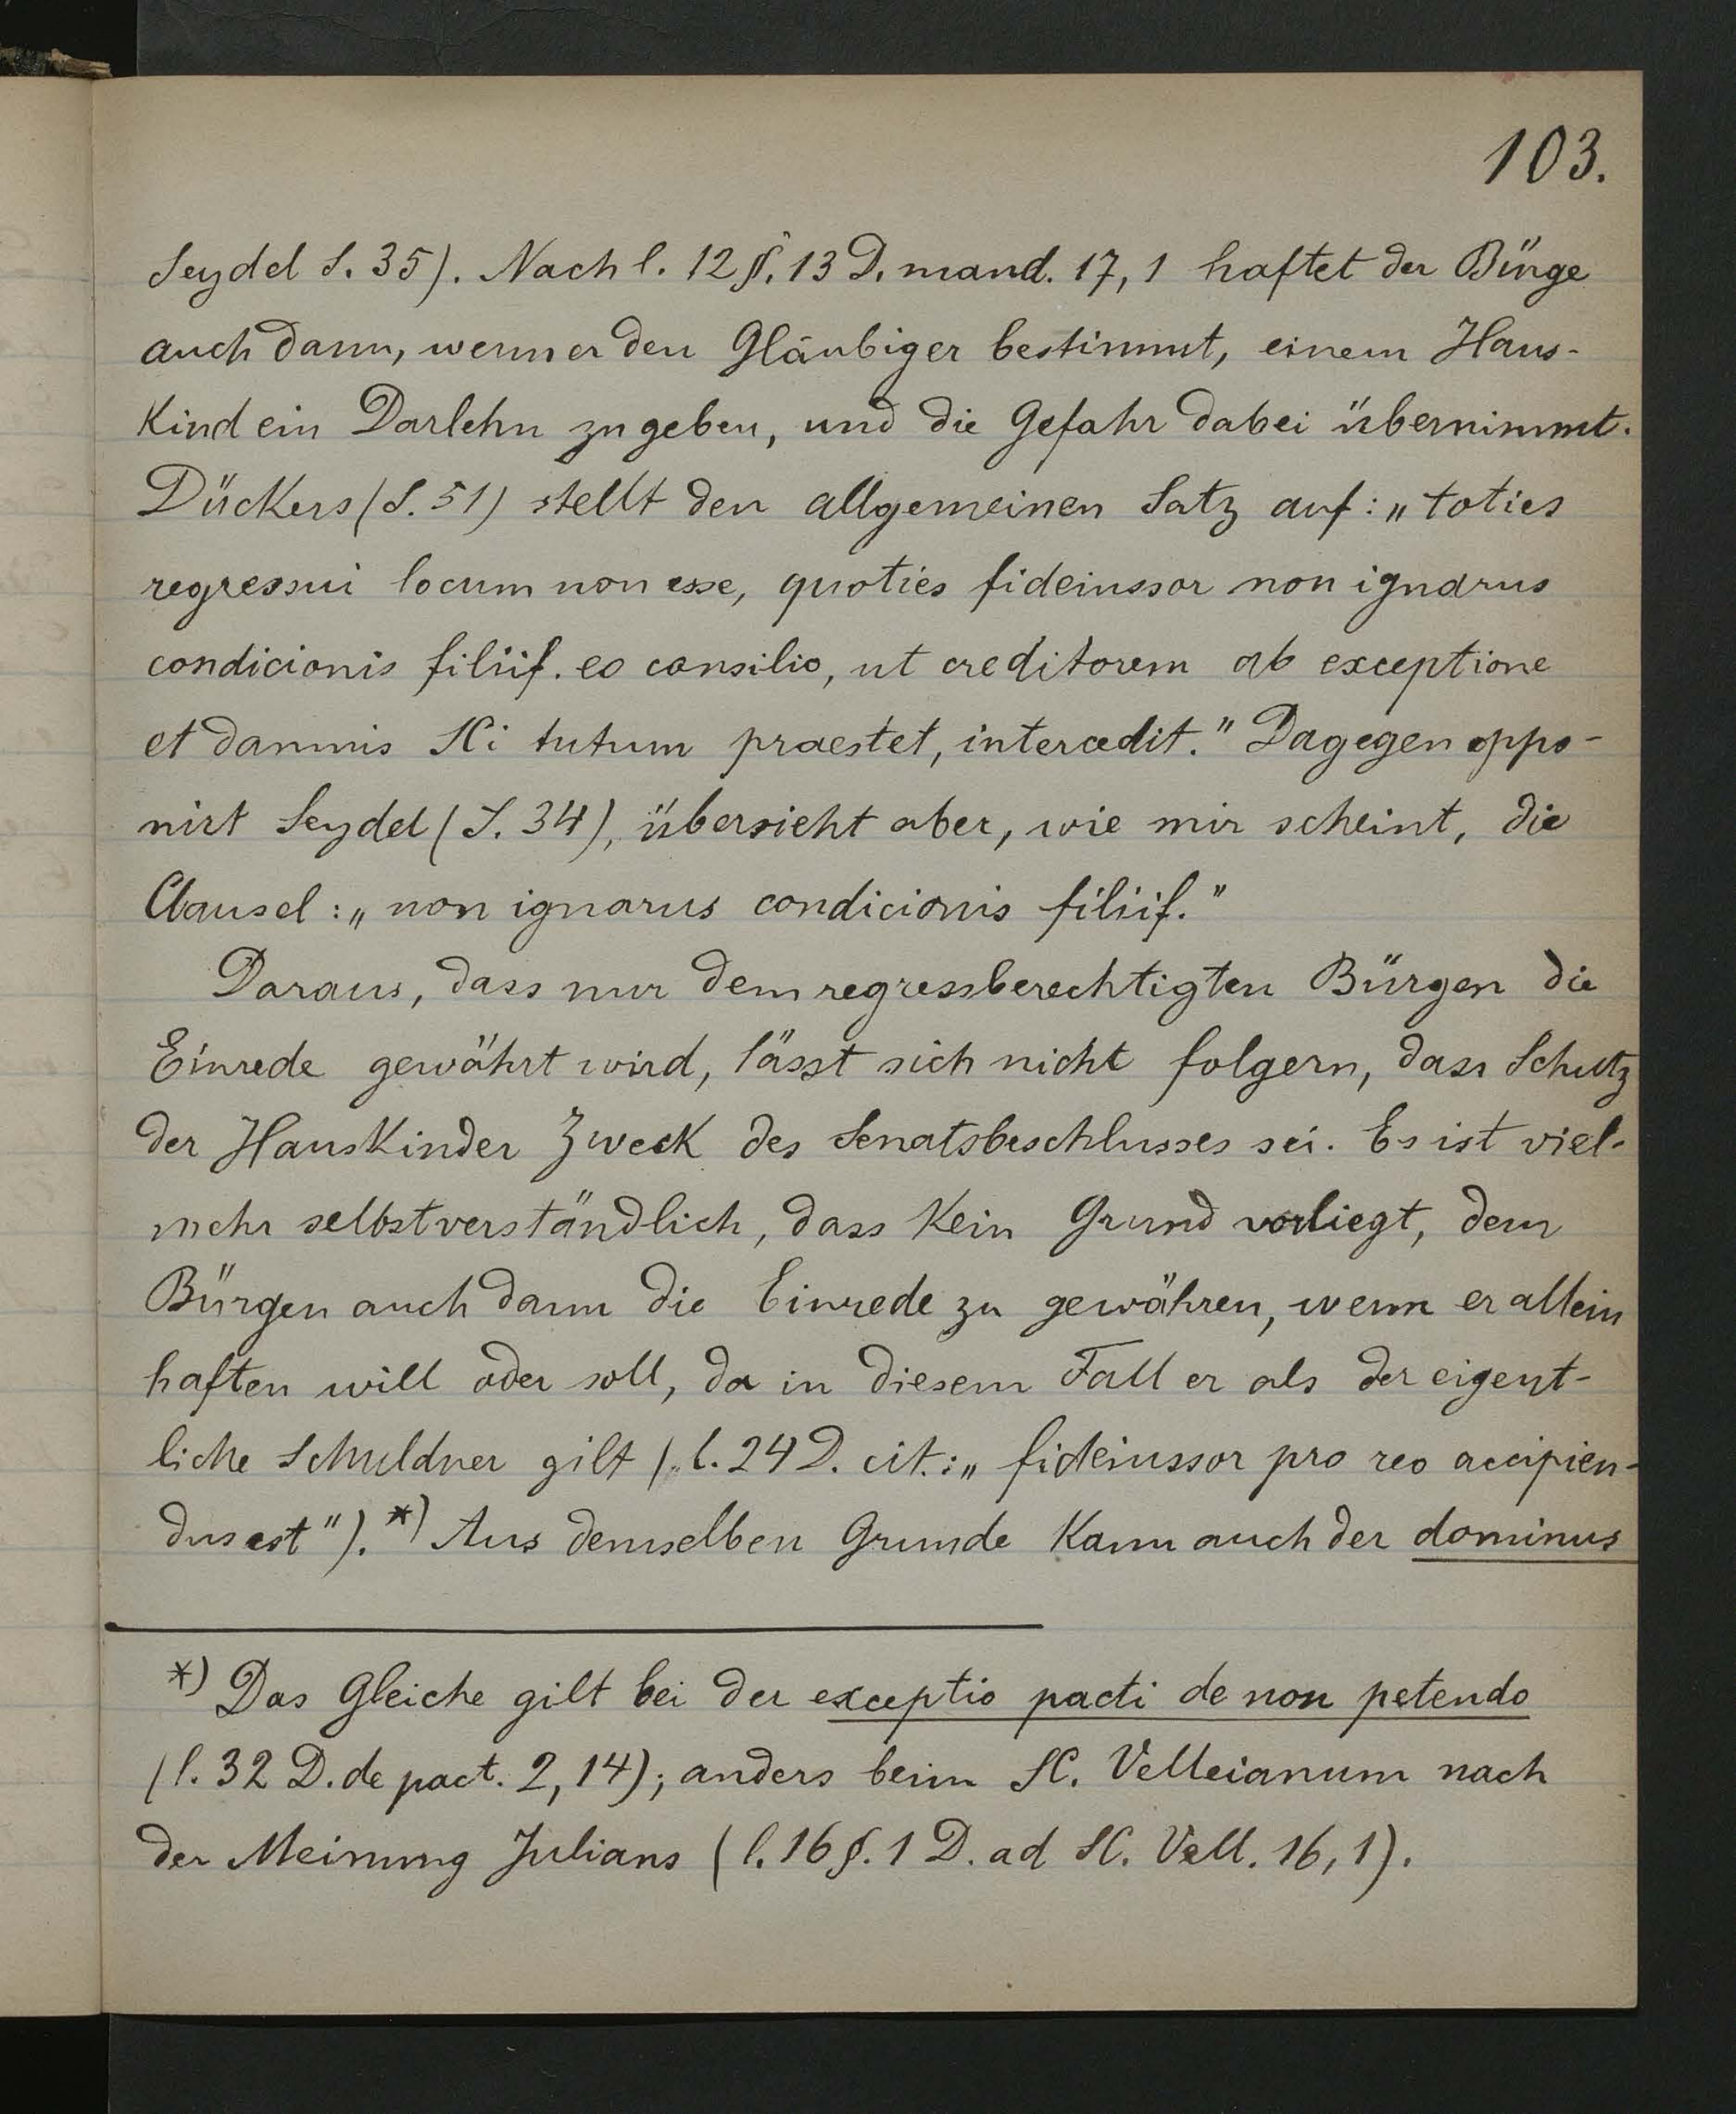 103.
Seydel S. 35). Nach l. 12 §. 13 D. mand. 17, 1 haftet der Bürge
auch dann, wenn er den Gläubiger bestimmt, einem Haus-
kind ein Darlehn zu geben, und die Gefahr dabei übernimmt.
Dückers (S. 51) stellt den allgemeinen Satz auf: „toties
regressui locum non esse, quoties fideiussor non ignarus
condicionis filiif. eo consilio, ut creditorem ab exceptione
et damnis SCi tutum praestet, intercedit." Dagegen oppo-
nirt Seydel (S. 34), übersieht aber, wie mir scheint, die
Clausel: „non ignarus condicionis filiif."
Daraus, dass nur dem regressberechtigten Bürgen die
Einrede gewährt wird, lässt sich nicht folgern, dass Schutz
der Hauskinder Zweck des Senatsbeschlusses sei. Es ist viel-
mehr selbstverständlich, dass kein Grund vorliegt, dem
Bürgen auch dann die Einrede zu gewähren, wenn er allein
haften will oder soll, da in diesem Fall er als der eigent-
liche Schuldner gilt (l. 24 D. cit.: „fideiussor pro reo accipien-
dus est"). *) Aus demselben Grunde kann auch der dominus
*) Das Gleiche gilt bei der exceptio pacti de non petendo
(l. 32 D. de pact. 2, 14); anders beim SC. Velleianum nach
der Meinung Julians (l. 16 §. 1 D. ad SC. Vell. 16, 1).